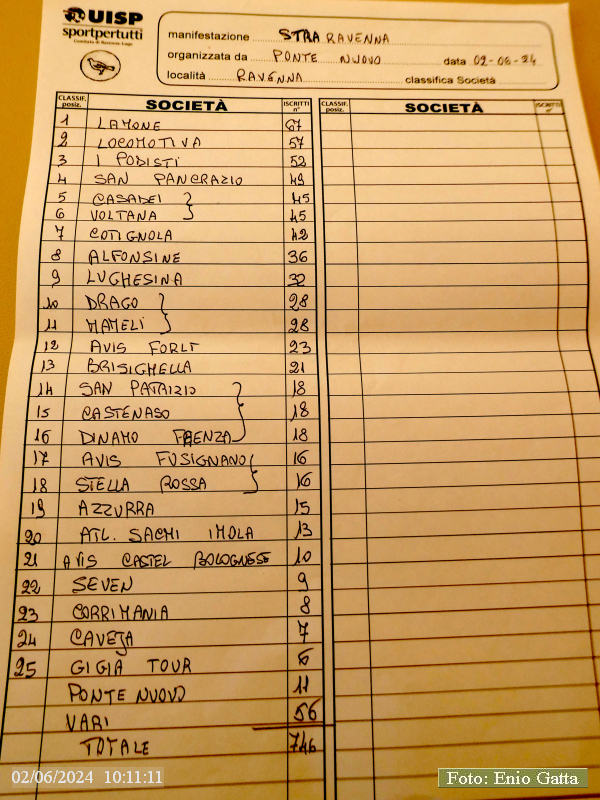 UISP
sportpertutti
Comitato di Ravenna-Lugo
manifestazione STRARAVENNA
organizzata da PONTE NUOVO data 02-06-24
località RAVENNA classifica Società
CLASSIF. posiz. SOCIETÀ ISCRITTI n° CLASSIF. posiz. SOCIETÀ ISCRITTI n°
1 LAMONE 67
2 LOCOMOTIVA 57
3 I PODISTI 52
4 SAN PANCRAZIO 49
5 CASADEI 45
6 VOLTANA 45
7 COTIGNOLA 42
8 ALFONSINE 36
9 LUGHESINA 32
10 DRAGO 28
11 MAMELI 28
12 AVIS FORLI 23
13 BRISIGHELLA 21
14 SAN PATRIZIO 18
15 CASTENASO 18
16 DINAMO FAENZA 18
17 AVIS FUSIGNANO 16
18 STELLA ROSSA 16
19 AZZURRA 15
20 ATL. SACMI IMOLA 13
21 AVIS CASTEL BOLOGNESE 10
22 SEVEN 9
23 CORRIMANIA 8
24 CAVEJA 7
25 GIGIA TOUR 6
PONTE NUOVO 11
VARI 56
TOTALE 746
02/06/2024 10:11:11
Foto: Enio Gatta